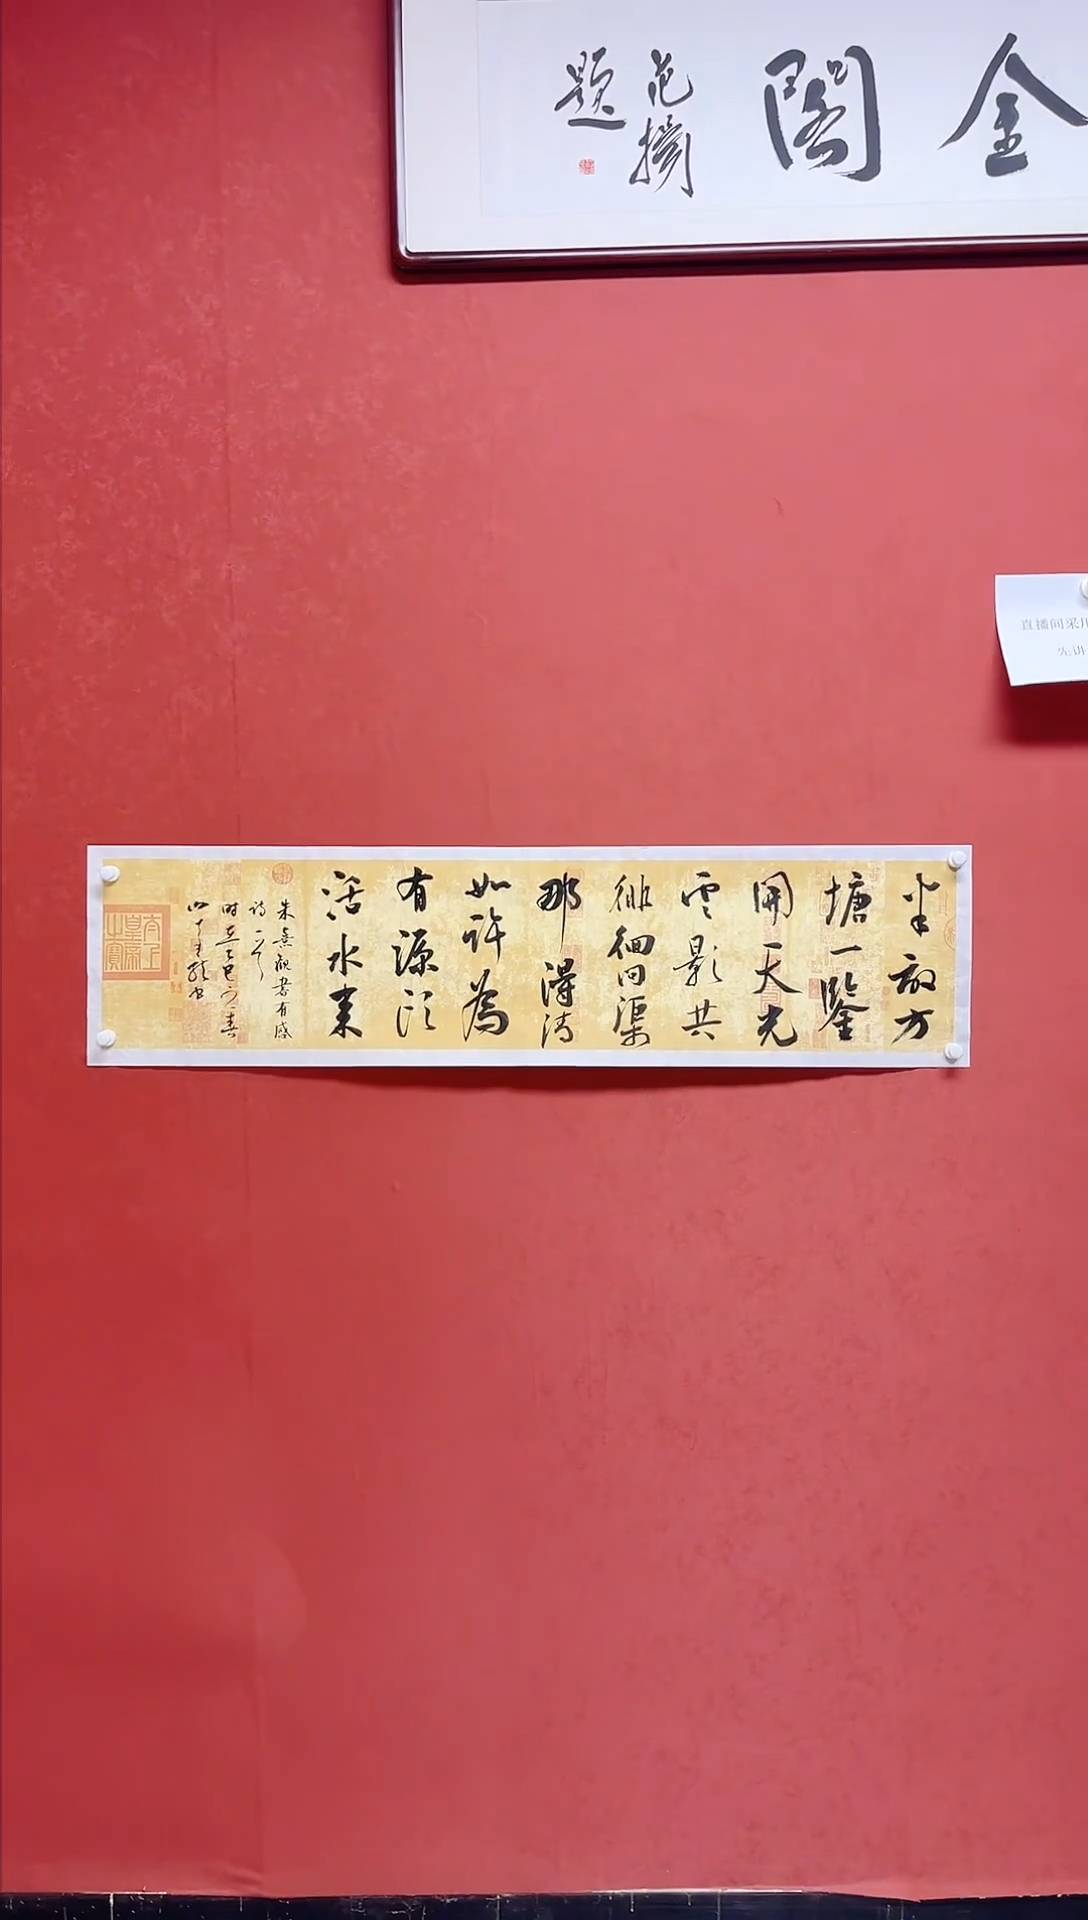 金閣
范揚
題
直播间采用
先讲
半畝方
塘一鑒
開天光
雲影共
徘徊問渠
那得清
如許為
有源頭
活水來
朱熹觀書有感
詩一首
時在乙巳之春
太上
皇帝
之寶